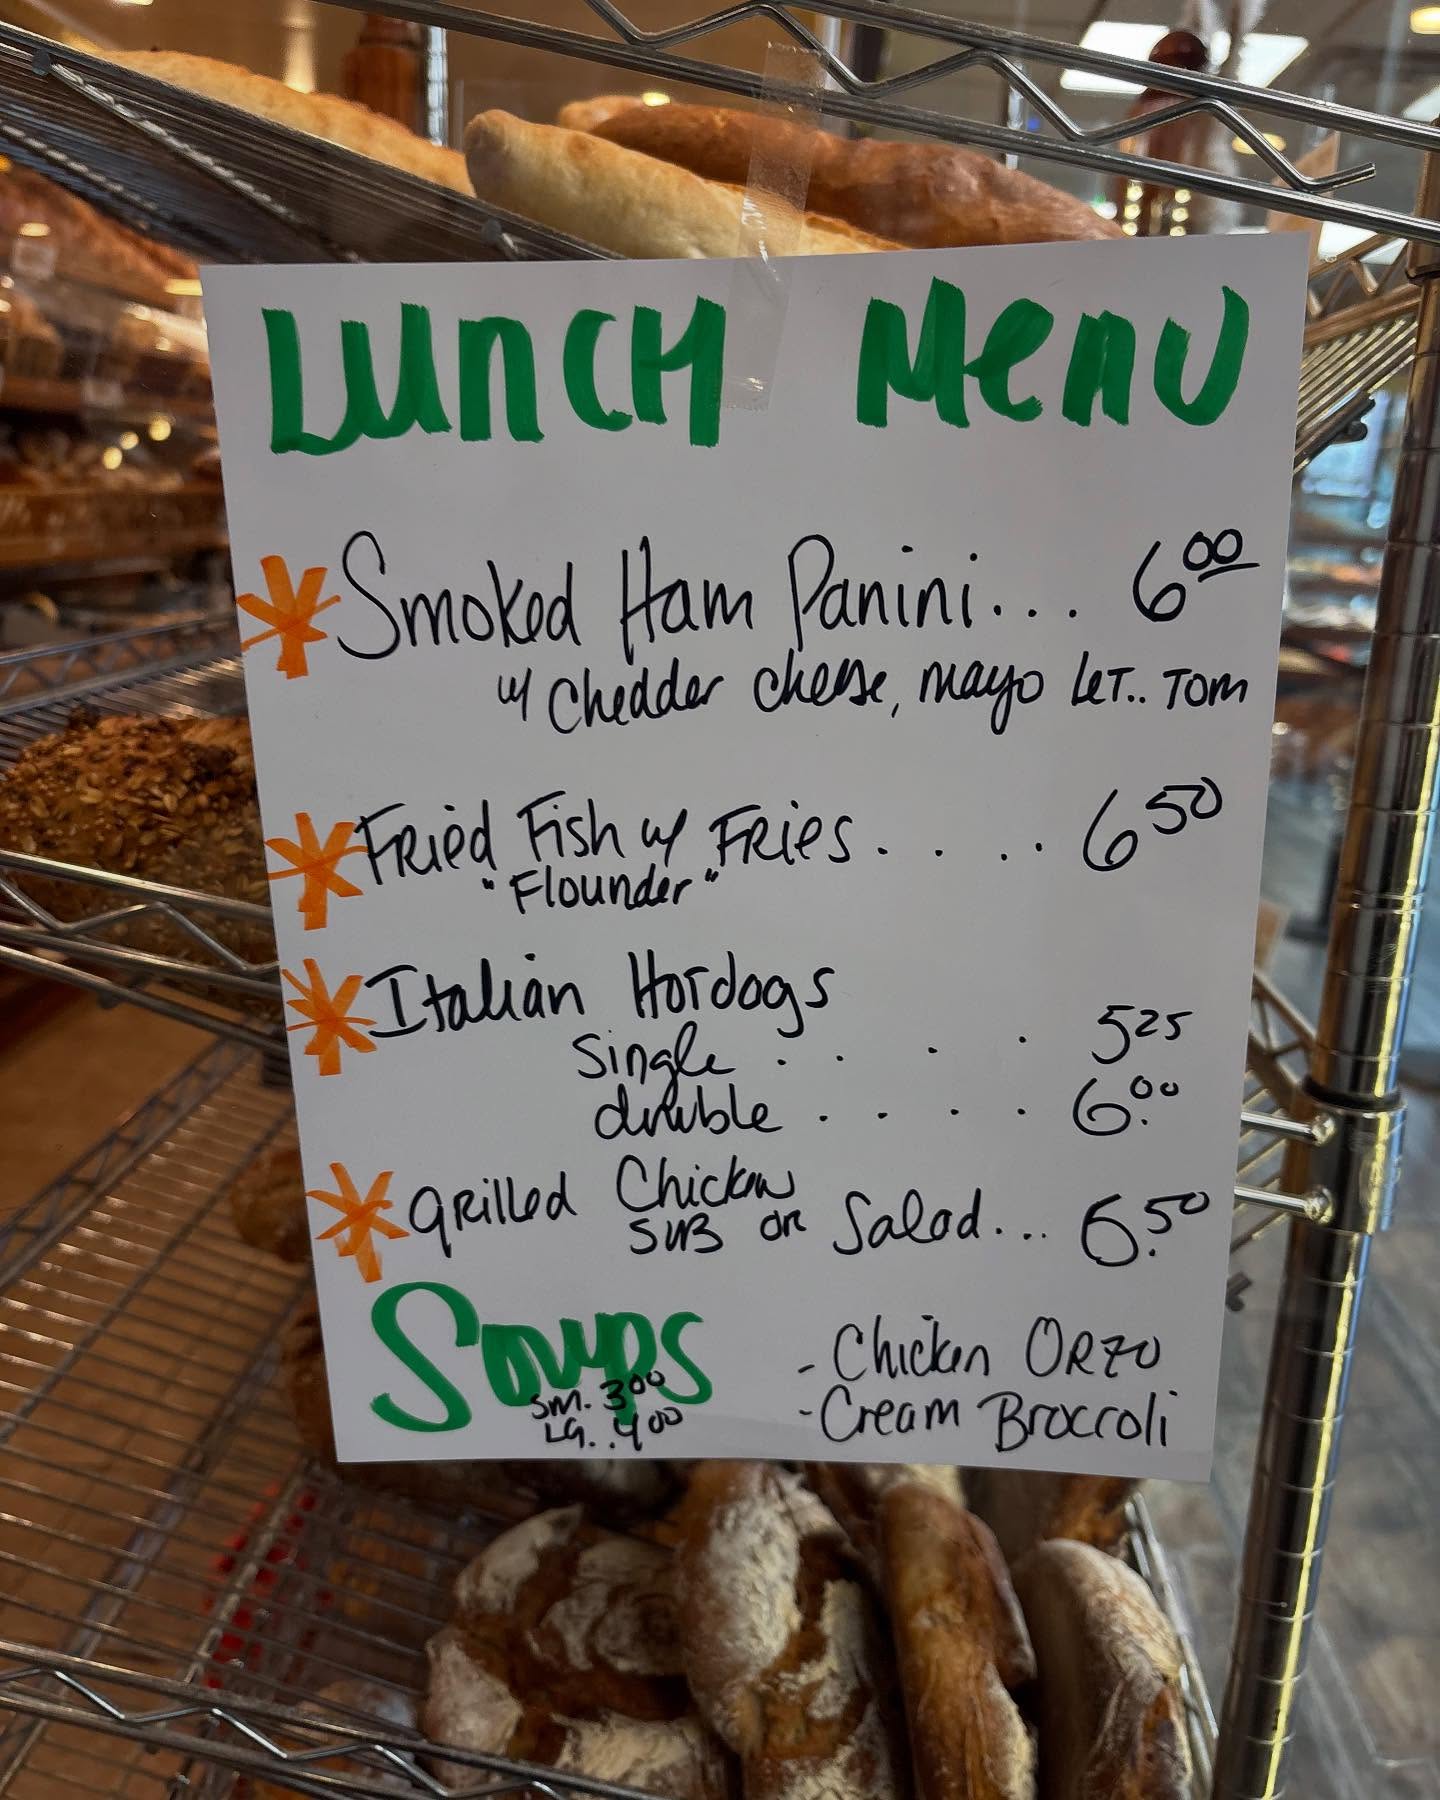 Lunch Menu
Smoked Ham Panini... 6.00
w/ Chedder cheese, mayo LeT.. Tom
Fried Fish w/ Fries..... 6 50
"Flounder"
Italian Hotdogs
Single.... 5 25
double.... 6.00
Grilled Chicken
SUB or Salad... 6.50
Soups
- Chicken Orzo
Sm. 3 00
- Cream Broccroli
LG.. 4 00